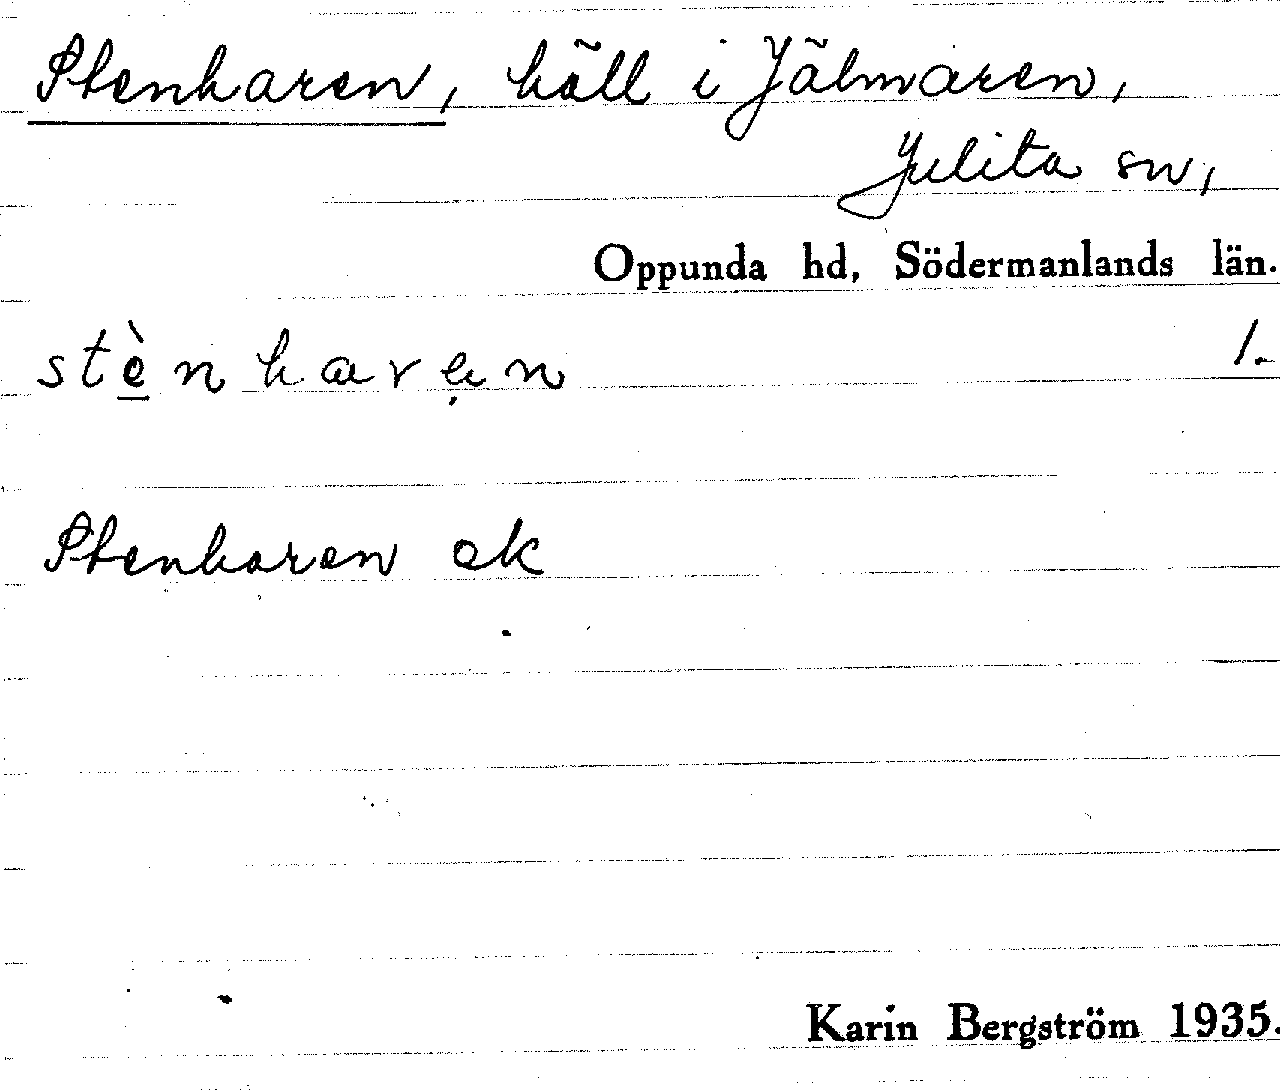 Stenharen, häll i Jälmaren,
Julita sn,
Oppunda hd, Södermanlands län.
stènharen 1.
Stenharen ek
Karin Bergström 1935.